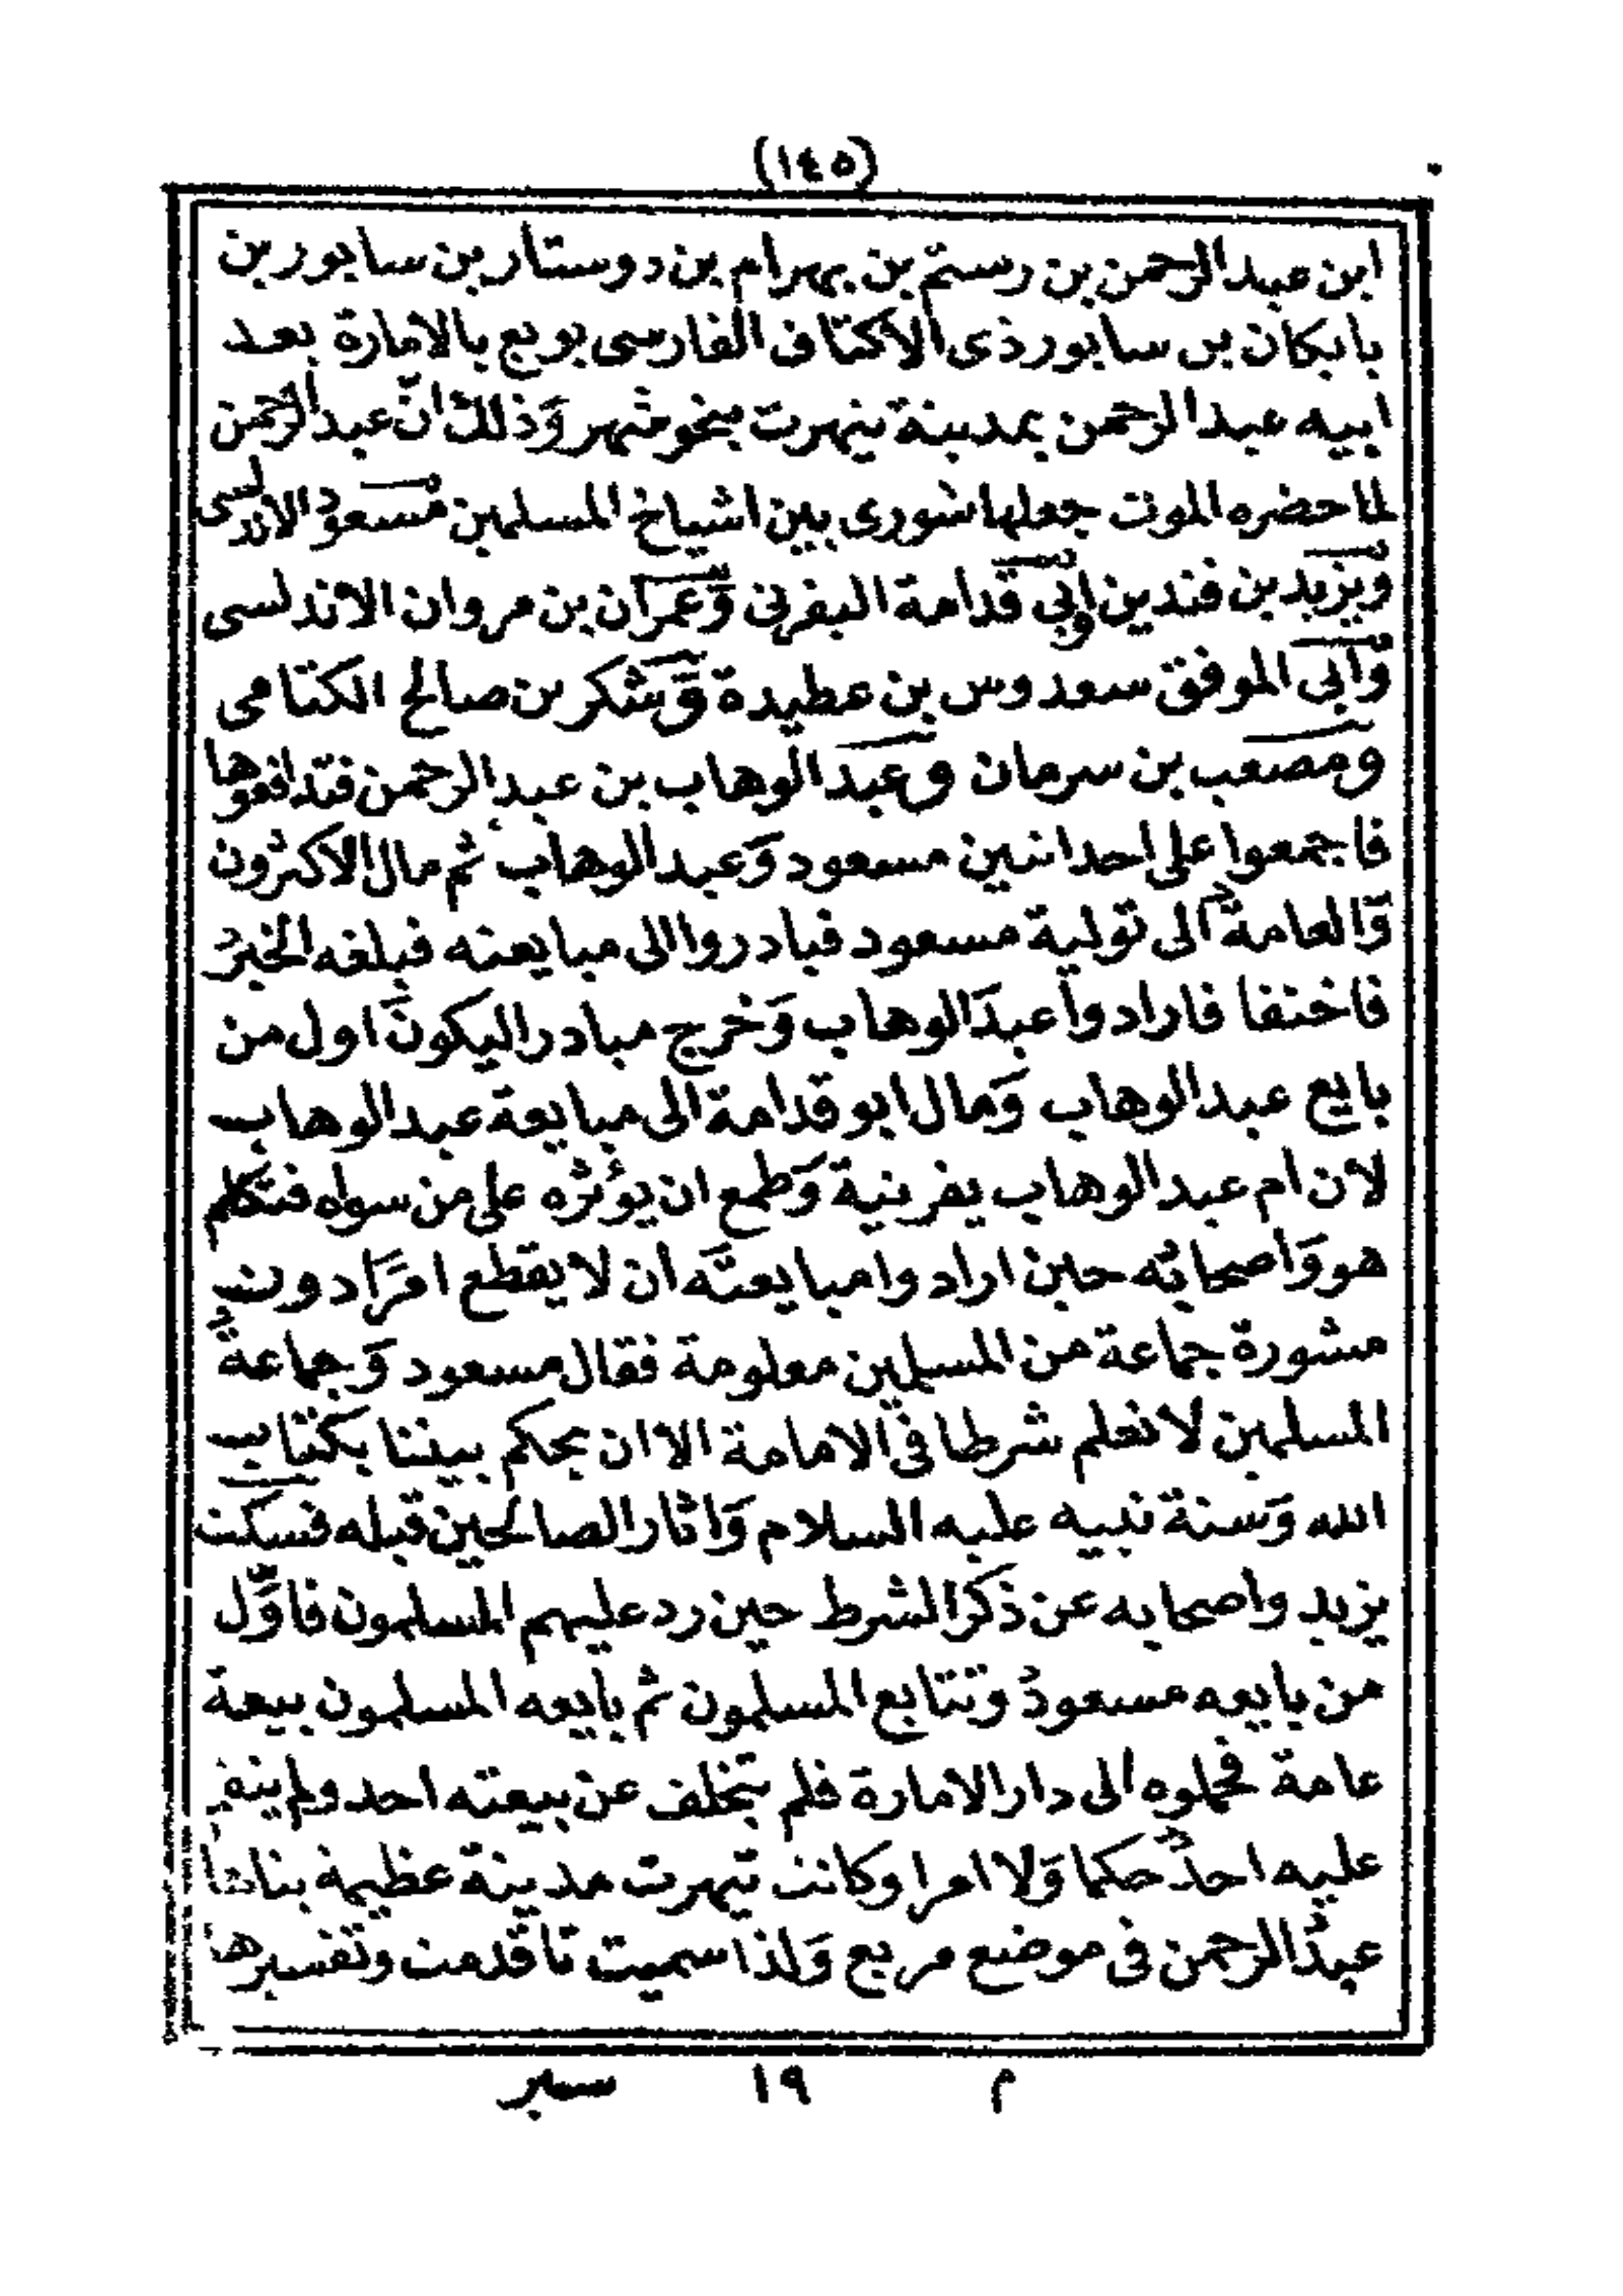 (١٤٥)
ابن عبد الرحمن بن رستم بن بهرام بن دوستار بن سابور بن
بابكان بن سابور ذى الاكتاف الفارسى بويع بالامارة بعد
ابيه عبد الرحمن بمدينة تيهرت بنحو شهر وَذلك انّ عبد الرحمن
لما حضره الموت جعلها شورى بين اشياخ المسلمين مسعود الاندلسى
وَيزيد بن فندين وابى قدامة اليفرنى وَعمران بن مروان الاندلسى
وَابى الموفق سعدوس بن عطيدة وَشكر بن صالح الكتامى
ومصعب بن سرمان وعبد الوهاب بن عبد الرحمن فتدافعوها
فاجمعوا على احد اثنين مسعود وَعبد الوهاب ثم مال الاكثرون
وَالعامةُ الى تولية مسعود فبادروا الى مبايعته فبلغه الخبرُ
فاختفا فارادوا عبدَ الوهاب وَخرج مبادرا ليكونَ اول من
بايع عبد الوهاب وَمال ابو قدامة الى مبايعة عبد الوهاب
لان ام عبد الوهاب يفرنية وَطمع ان يؤثره على من سواه فتكلم
هو وَاصحابُه حين ارادوا مبايعتَه ان لا يقطع امرًا دون
مشورة جماعة من المسلمين معلومة فقال مسعود وَجماعةُ
المسلمين لا نعلم شرطا فى الامامة الا ان يحكم بيننا بكتاب
الله وَسنة نبيه عليه السلام وَاثار الصالحين قبله فسكت
يزيد واصحابه عن ذكر الشرط حين رد عليهم المسلمون فاوَّل
من بايعه مسعودُ وتتابع المسلمون ثم بايعه المسلمون بيعة
عامة فحملوه الى دار الامارة فلم يتخلف عن بيعته احد ولم ينقم
عليه احدُ حكما وَلا امرا وكانت تيهرت مدينة عظيمة بناها
عبدُ الرحمن فى موضع مربع وَلذا سميت تاقدمت وتفسيرها
م ١٩ سير